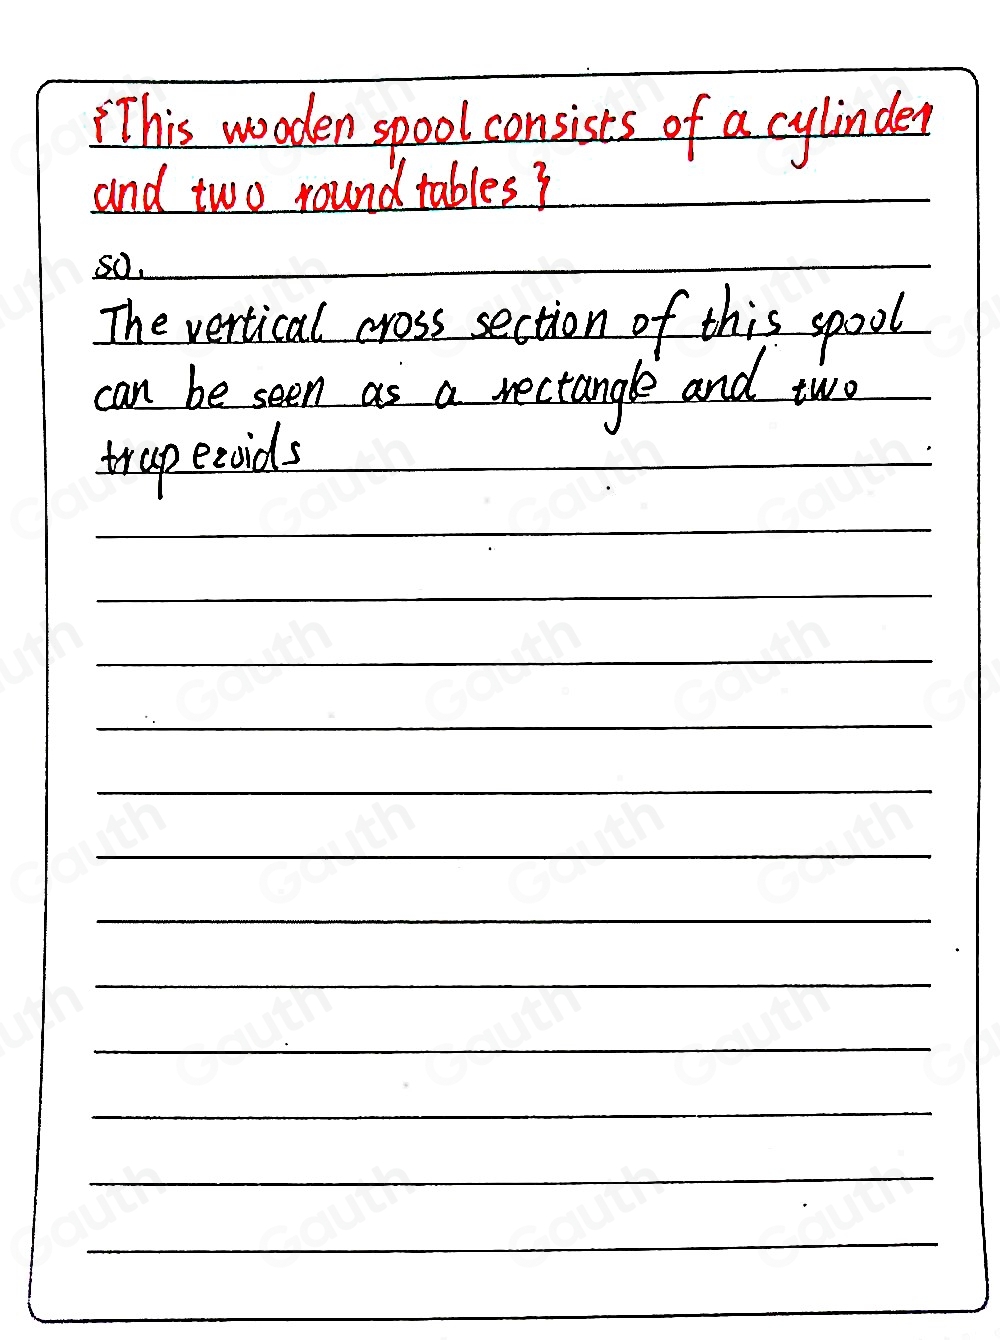 {This wooden spool consists of a cylinder
and two round tables}
so.
The vertical cross section of this spool
can be seen as a rectangle and two
trapezoids